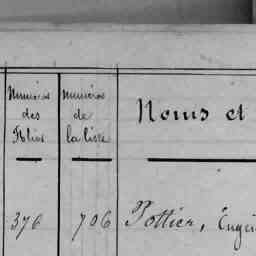 Numéros des Folios
numéros de la liste
Noms et
376
706
Pottier,